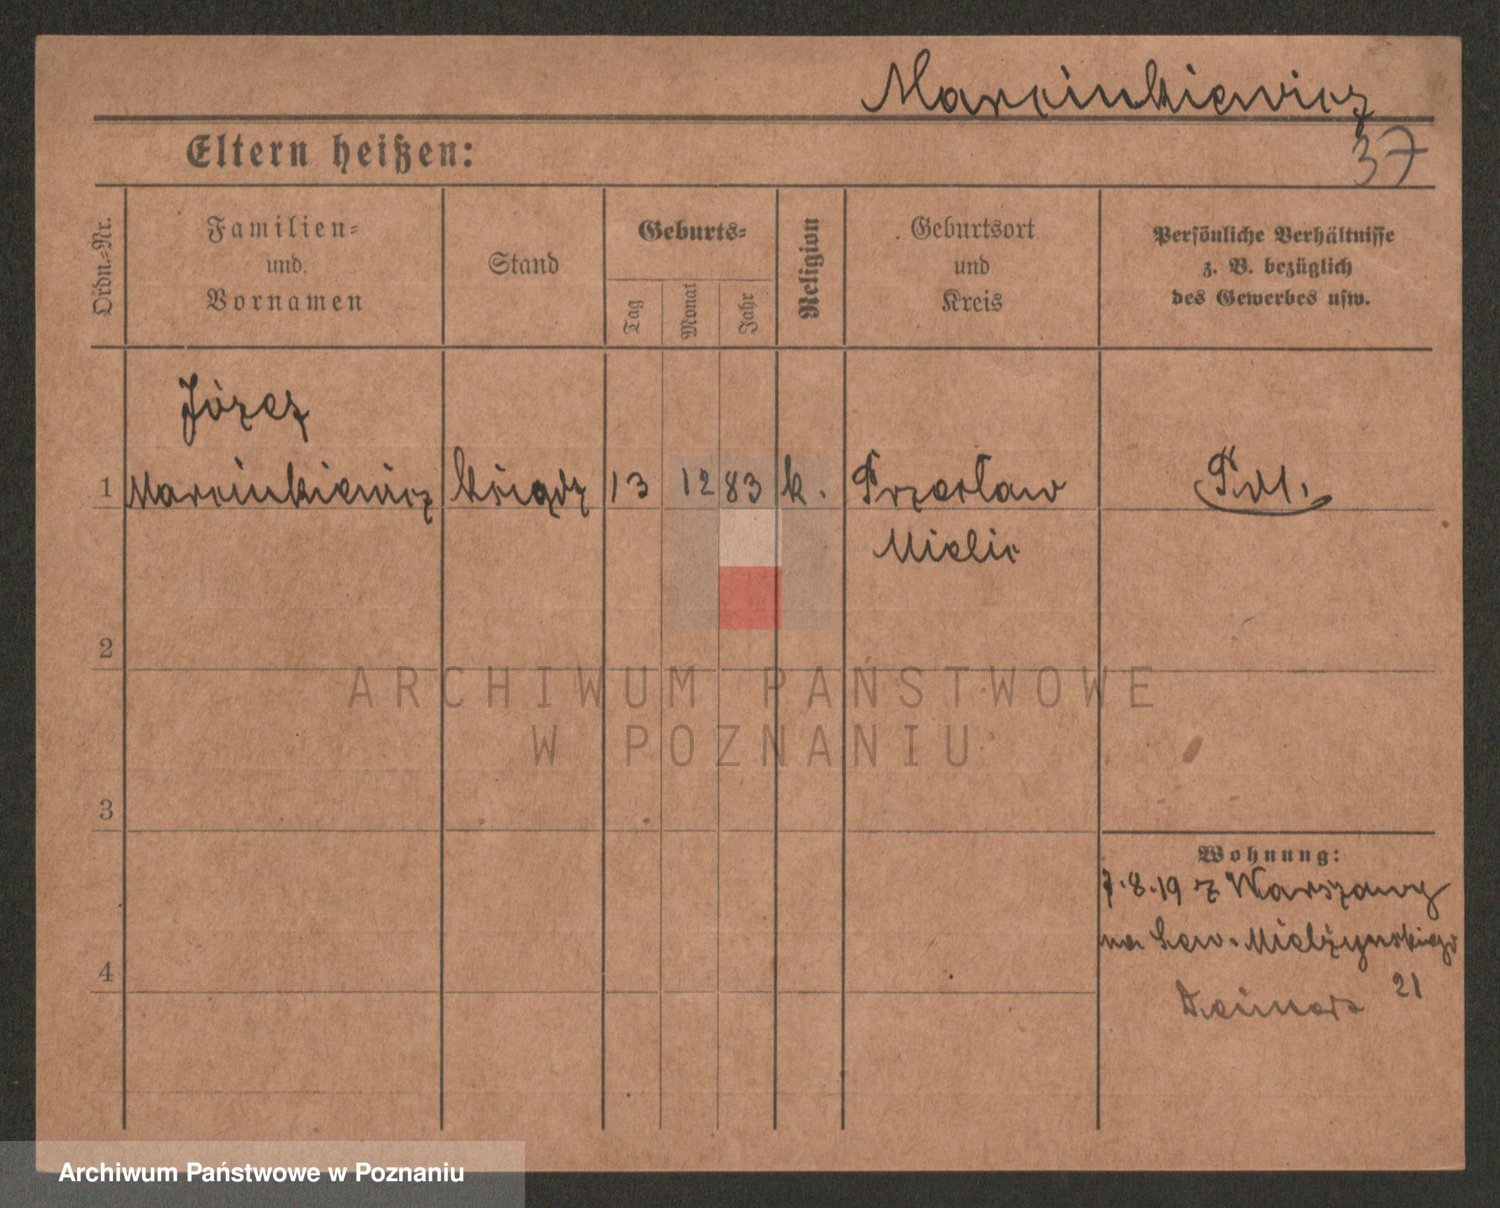 Marcinkiewicz
37
Eltern heißen:
Ordn.-Nr.
Familien-
und
Vornamen
Stand
Geburts-
Tag
Monat
Jahr
Religion
Geburtsort
und
Kreis
Persönliche Verhältnisse
z. B. bezüglich
des Gewerbes usw.
Józef
1 Marcinkiewicz ksiądz 13 12 83 k. Przecław
Mielic
2
ARCHIWUM PAŃSTWOWE
W POZNANIU
3
Wohnung:
7.8.19 z Warszawy
na Sew. Mielżyńskiego
21
4
Archiwum Państwowe w Poznaniu